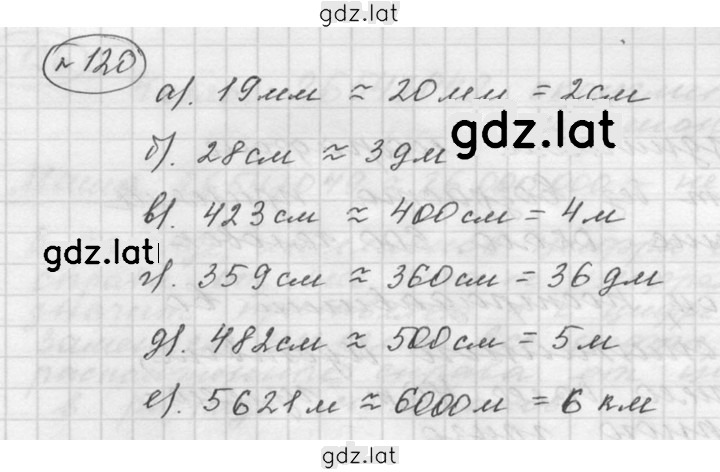 gdz.lat
№ 120
а). 19мм ≈ 20мм = 2см
gdz.lat
б). 28см ≈ 3дм
в). 423см ≈ 400см = 4м
gdz.lat
г). 359см ≈ 360см = 36дм
д). 482см ≈ 500см = 5м
е). 5621м ≈ 6000м = 6 км
gdz.lat